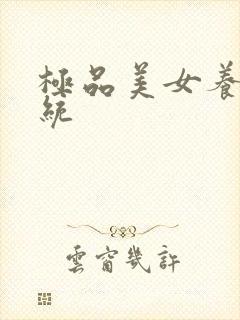 極品美女養
統
雲窗幾許